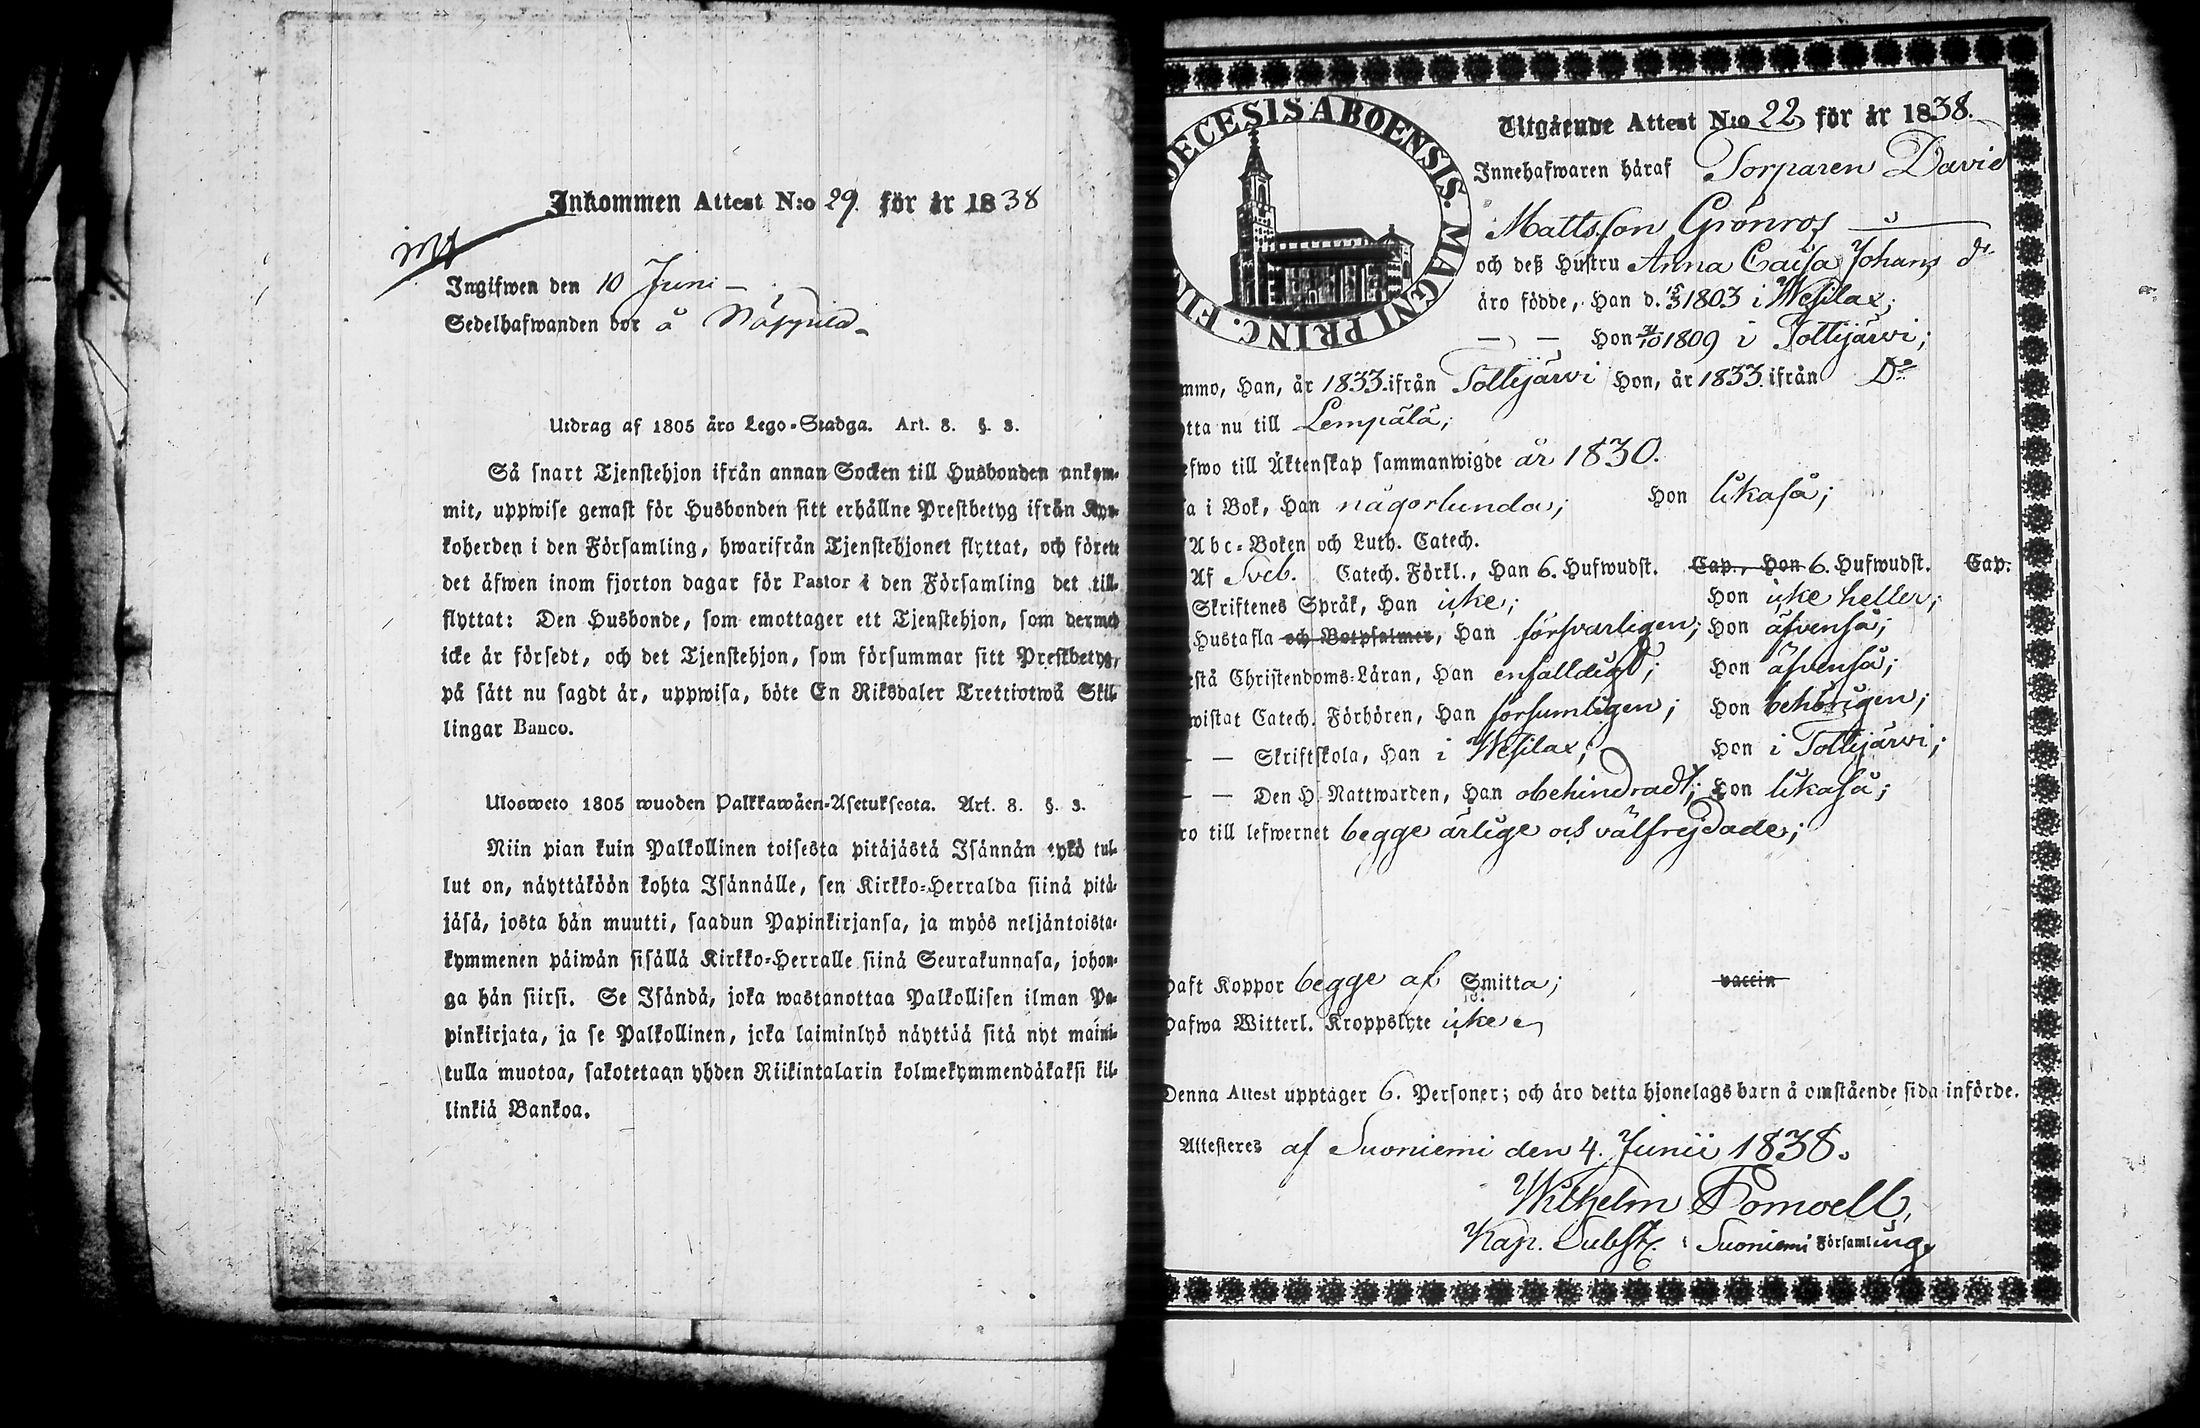 Inkommen Attest N:o 29. för år 1838
Ingifwen den 10 Juni –
Sedelhafwanden bor å
Utdrag af 1805 års Lego-Stadga. Art. 8. §. 3.
Så snart Tjenstehjon ifrån annan Socken till Husbonden ankom-
mit, uppwise genast för Husbonden sitt erhållne Prestbetyg ifrån Kyr-
koherden i den Församling, hwarifrån Tjenstehjonet flyttat, och förete
det äfwen inom fjorton dagar för Pastor i den Församling det till-
flyttat: Den Husbonde, som emottager ett Tjenstehjon, som dermed
icke är försedt, och det Tjenstehjon, som försummar sitt Prestbetyg,
på sätt nu sagdt är, uppwisa, böte En Riksdaler Trettiotwå Skil-
lingar Banco.
Ulosweto 1805 wuoden Palkkawäen-Asetuksesta. Art. 8. §. 3.
Niin pian kuin Palkollinen toisesta pitäjästä Isännän tykö tul-
lut on, näyttäköön kohta Isännälle, sen Kirkko-Herralda siinä pitä-
jäsä, josta hän muutti, saadun Papinkirjansa, ja myös neljäntoista-
kymmenen päiwän sisällä Kirkko-Herralle siinä Seurakunnasa, johon-
ga hän siirsi. Se Isändä, joka wastanottaa Palkollisen ilman Pa-
pinkirjata, ja se Palkollinen, joka laiminlyö näyttää sitä nyt maini-
tulla muotoa, sakotetaan yhden Riikintalarin kolmekymmendäkaksi kil-
linkiä Bankoa.
OECESIS ABOENSIS. MAGNI PRINC. FIN
Utgående Attest N:o 22 för år 1838.
Innehafwaren häraf Torparen David
Mattsson Grönros
och deß Hustru Anna Caisa Johans dr
äro födde, Han d. 15/3 1803 i Wesilax;
— — Hon 1809 i Tottijärvi;
mmo, Han, år 1833. ifrån Tottijärvi Hon, år 1833. ifrån Do
tta nu till Lempälä;
efwo till Äktenskap sammanwigde år 1830.
a i Bok, Han någorlunda; Hon likaså;
Abc-Boken och Luth. Catech.
Af Sveb. Catech. Förkl., Han 6. Hufwudst. Cap., Hon 6. Hufwudst. Cap.
Skriftenes Språk, Han icke; Hon icke heller;
Hustafla och Botpsalmer, Han försvarligen; Hon äfvenså;
stå Christendoms-Läran, Han enfalldigt; Hon äfvenså;
wistat Catech. Förhören, Han försumligen; Hon behörigen;
— — Skriftskola, Han i Wesilax; Hon i Tottijärvi;
— — Den H. Nattwarden, Han obehindradt; Hon likaså;
ro till lefwernet begge ärlige och välfrejdade;
haft Koppor begge af Smitta; vaccin
hafwa Witterl. Kroppslyte icke
Denna Attest upptager 6. Personer; och äro detta hjonelags barn å omstående sida införde.
Attesteres af Suoniemi den 4. Junii 1838.
Wilhelm Pomoell,
Kap. Subst. i Suoniemi Församling